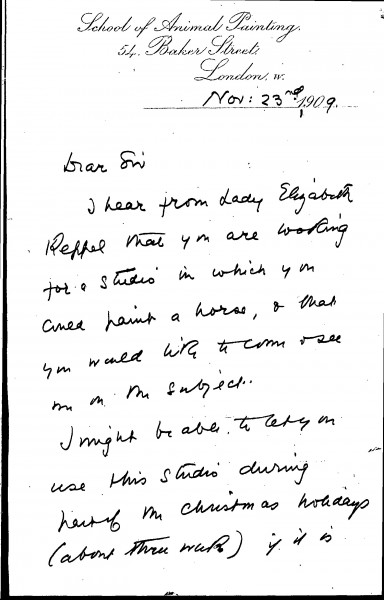 School of Animal Painting.
54, Baker Street,
London, W.
Nov: 23rd, 1909.
Dear Sir
I hear from Lady Elizabeth
Keppel that you are looking
for a studio in which you
could paint a horse, & that
you would like to come & see
me on the subject.
I might be able to let you
use this studio during
part of the Christmas holidays
(about three weeks) if it is